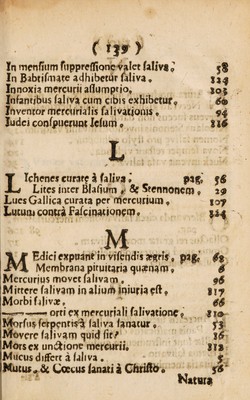 ( 139 )
In mensium suppressione valet saliva. 58
In Babtismate adhibetur saliva. 124
Innoxia mercurii assumptio. 103
Infantibus saliva cum cibis exhibetur. 60
Inventor mercurialis salivationis. 94
Iudei conspuerunt Iesum. 116
L
LIchenes curatæ à saliva. pag. 56
Lites inter Blasium, & Stennonem. 29
Lues Gallica curata per mercurium. 107
Lutum contra Fascinationem. 124
M
MEdici expuant in visendis ægris. pag. 68
Membrana pituitaria quænam. 6
Mercurius movet salivam. 96
Mittere salivam in alium iniuria est. 117
Morbi salivæ. 66
orti ex mercuriali salivatione. 110
Morsus serpentis à saliva sanatur. 53
Movere salivam quid sit? 16
Mors ex unctione mercurii. 112
Mucus differt à saliva. 5
Mutus, & Cœcus sanati à Christo. 56
Natura